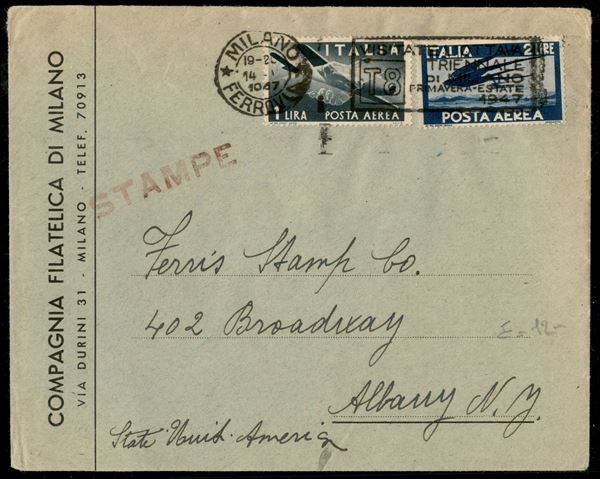 COMPAGNIA FILATELICA DI MILANO
VIA DURINI 31 - MILANO - TELEF. 70913
MILANO
19-20
14
1947
FERROVIA
ITALIA
1 LIRA POSTA AEREA
VISITATE
T8
TRIENNALE
DI MILANO
PRIMAVERA-ESTATE
1947
ITALIA 2 LIRE
POSTA AEREA
STAMPE
Ferris Stamp Co.
402 Broadway
Albany N.Y.
State Unit. America